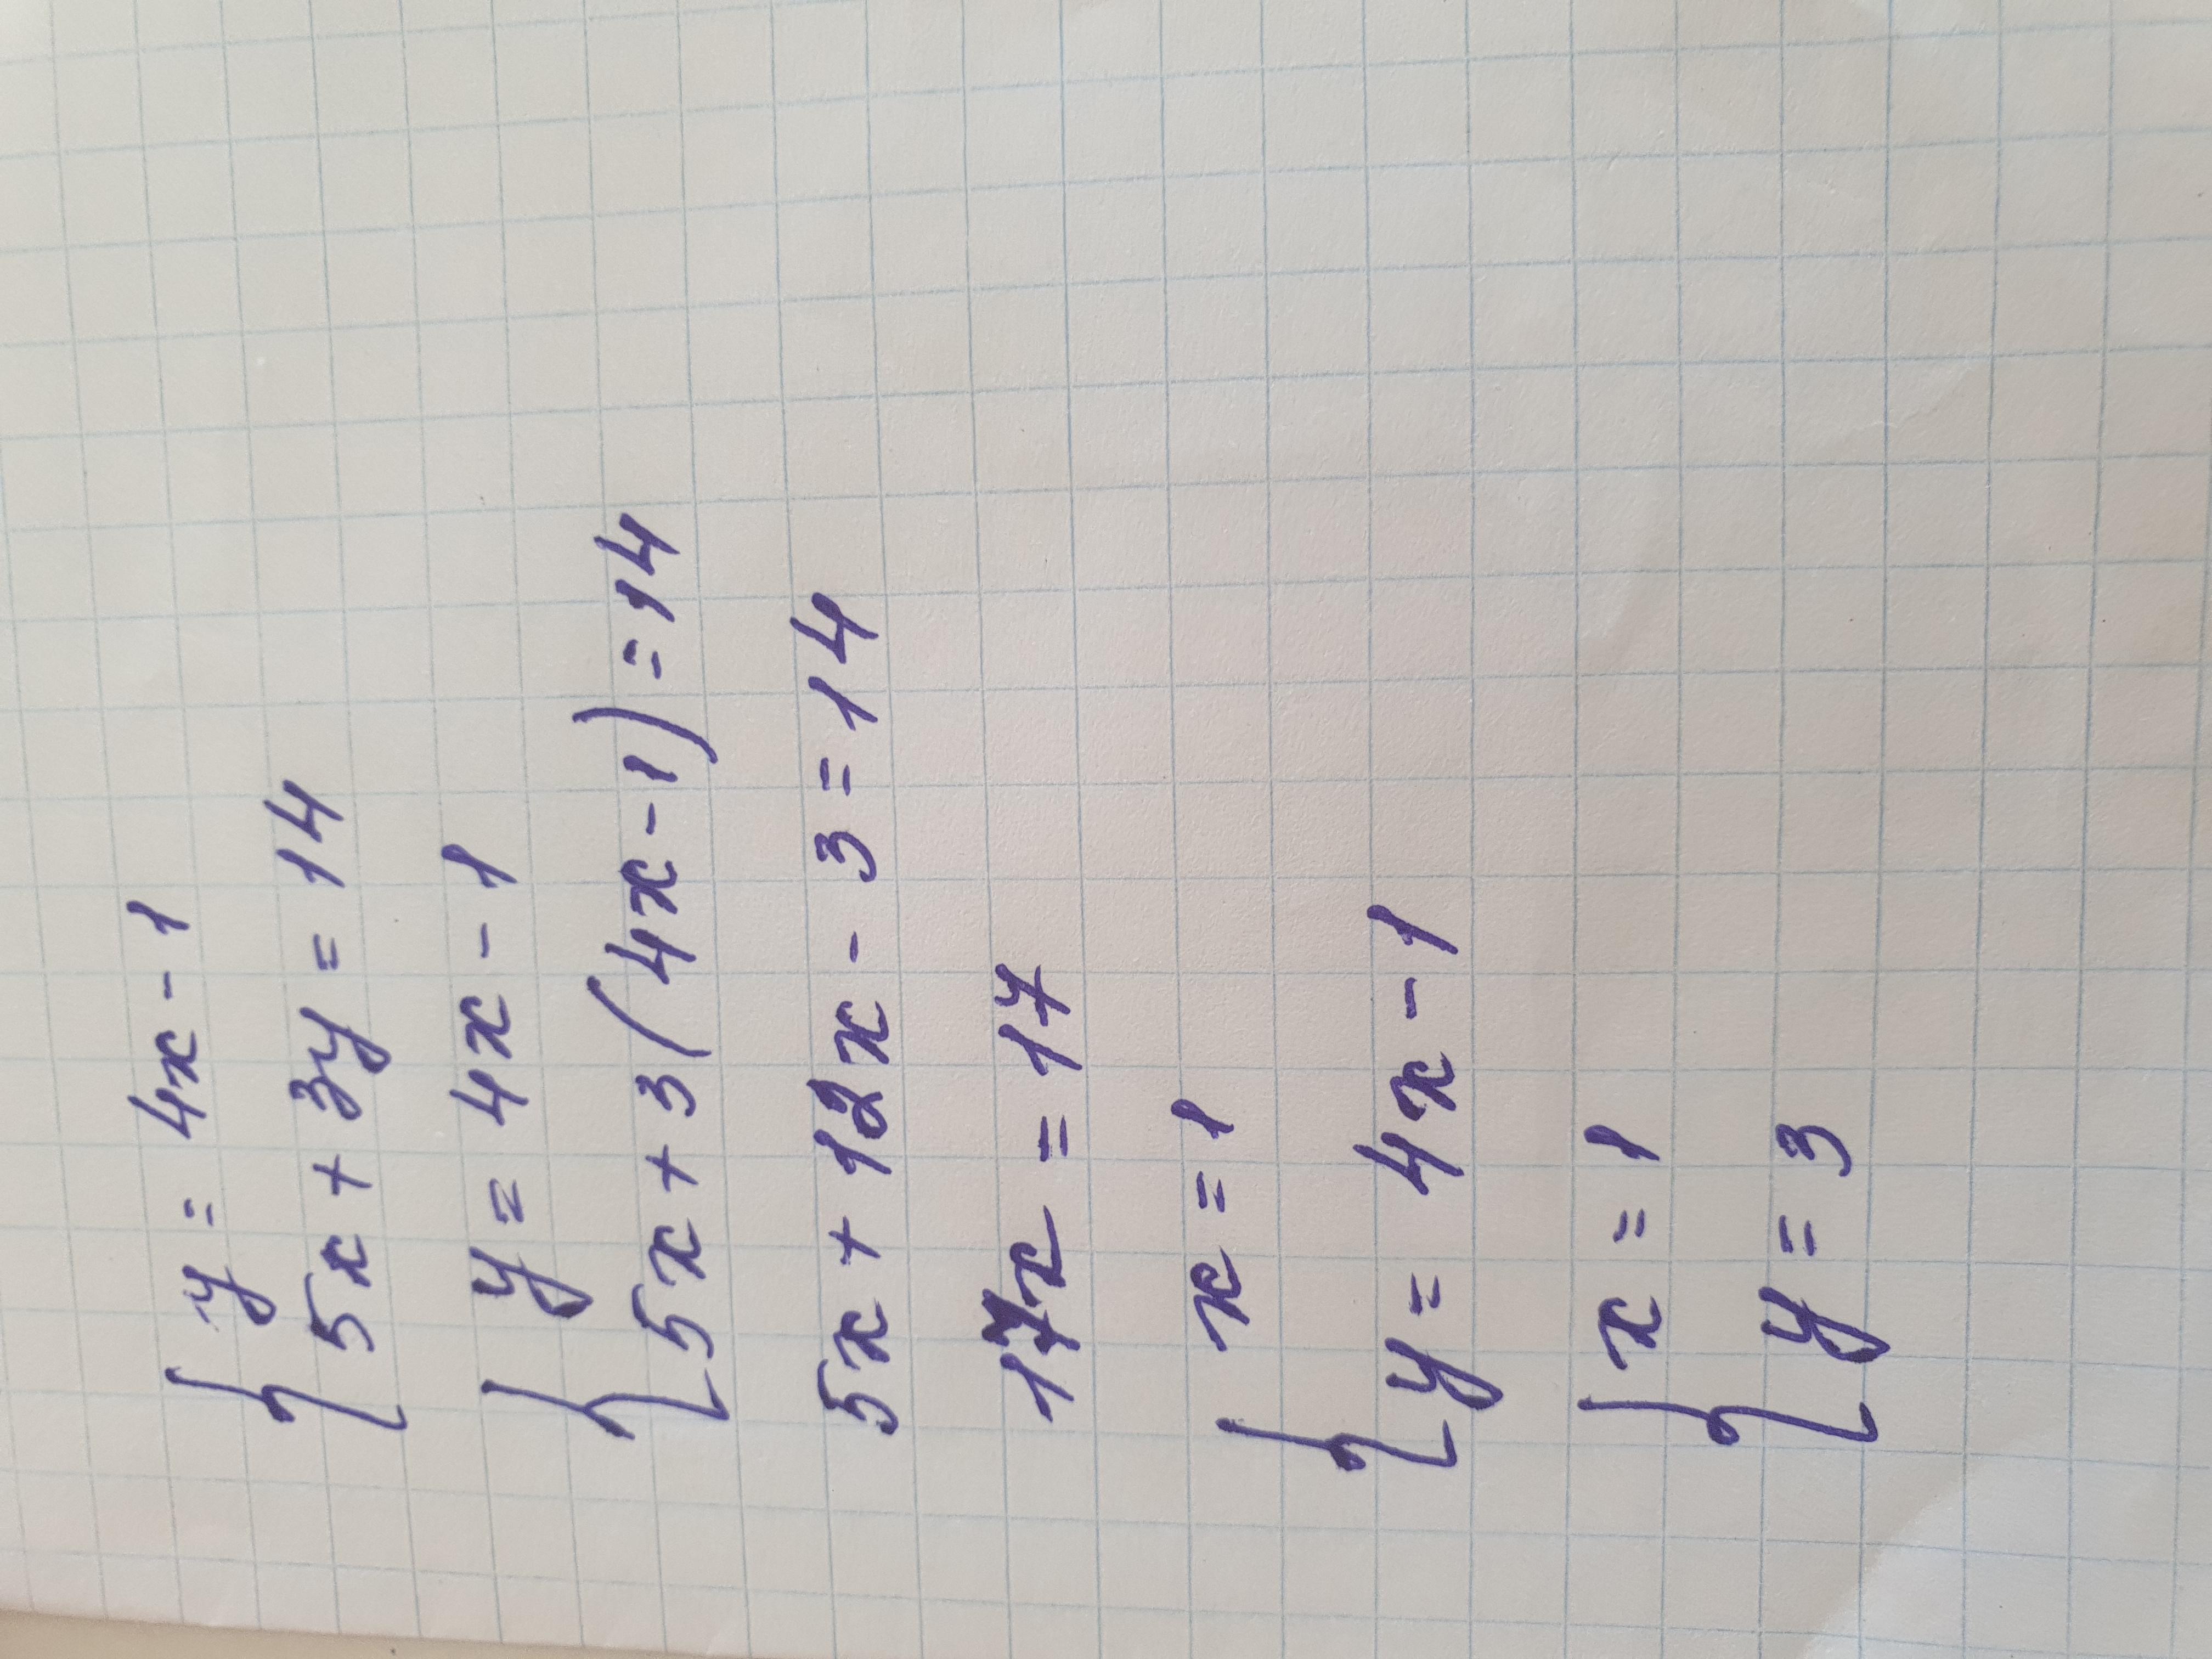 { y = 4x - 1
5x + 3y = 14
{ y = 4x - 1
5x + 3(4x - 1) = 14
5x + 12x - 3 = 14
17x = 17
{ x = 1
y = 4x - 1
{ x = 1
y = 3